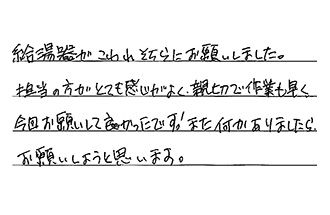 給湯器がこわれそちらにお願いしました。
担当の方がとても感じがよく、親切で作業も早く
今回お願いして良かったです!また何かありましたら、
お願いしようと思います。